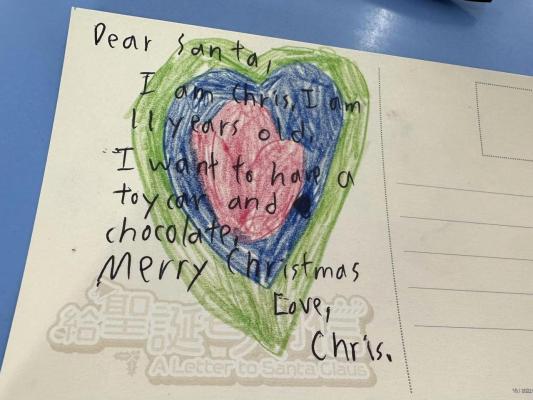 Dear Santa,
I am Chris, I am
11 years old.
I want to have a
toy car and
chocolate.
Merry Christmas
Love,
Chris.
給聖誕老人的信
A Letter to Santa Claus